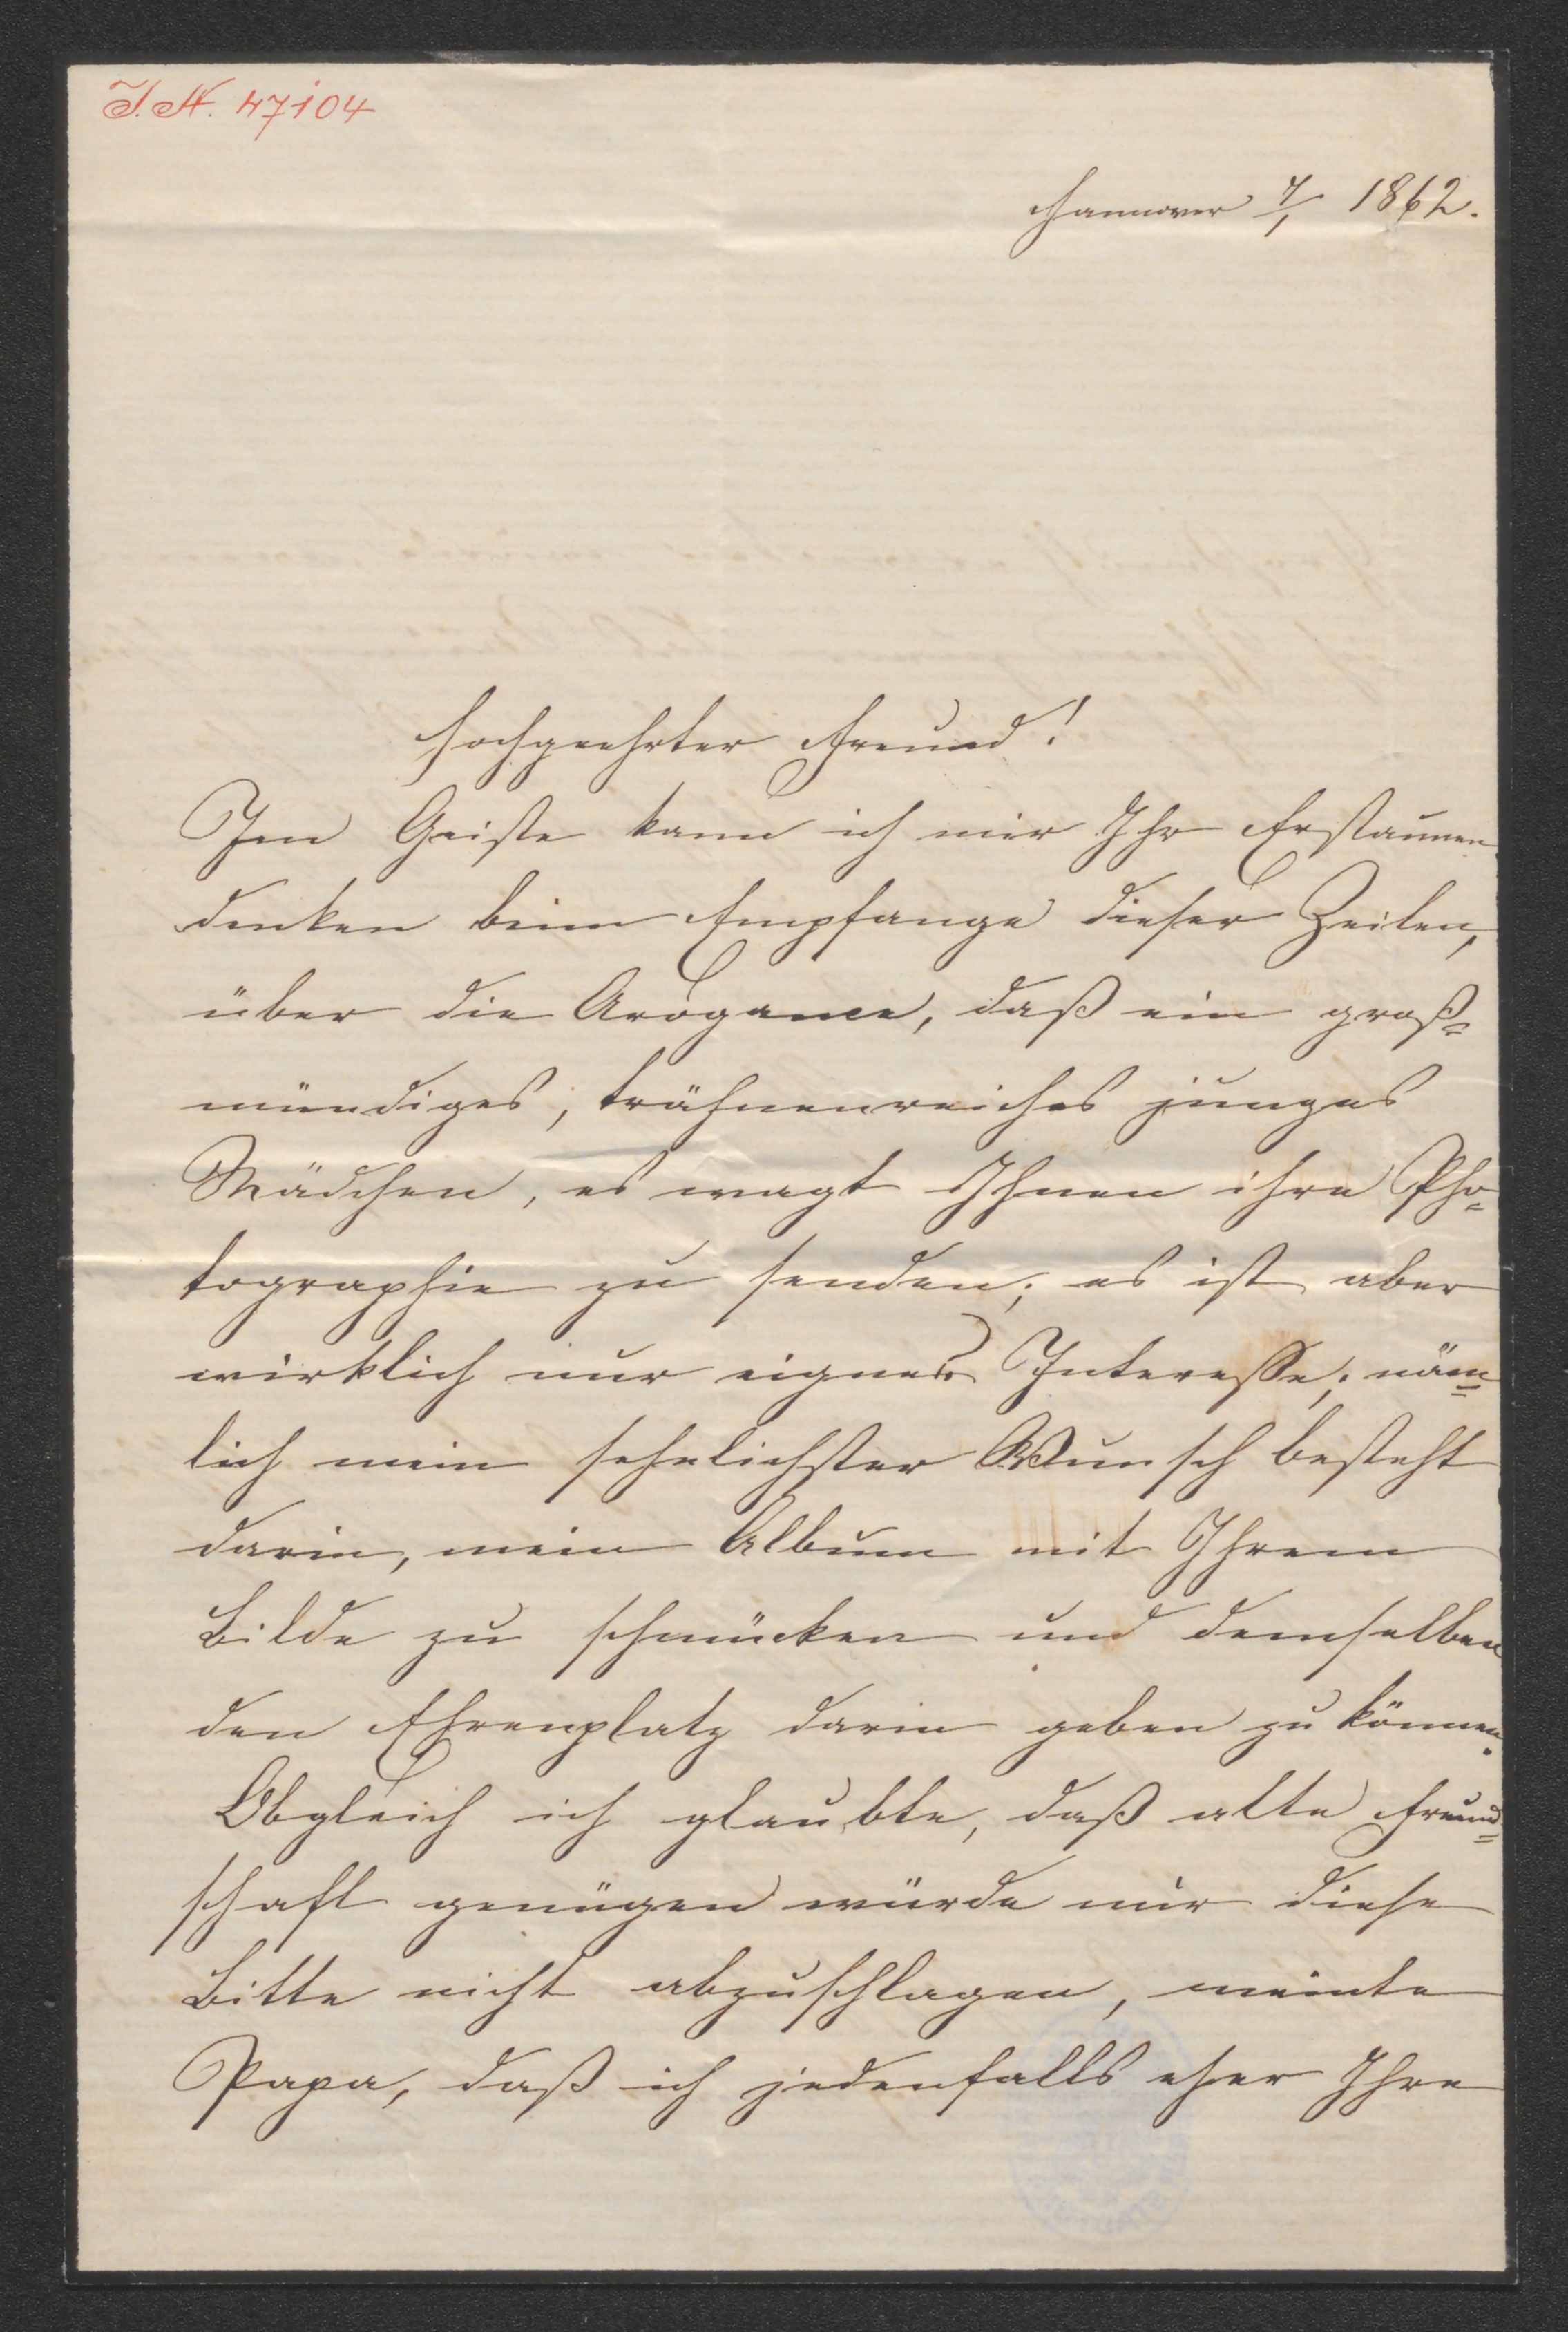 I.N. 47104
Hannover 7/1 1862.
Hochgeehrter Freund!
Im Geiste kann ich mir Ihr Erstaunen
denken beim Empfange dieser Zeilen,
über die Arogance, daß ein groß=
mündiges, trähnenreiches junges
Mädchen, es wagt Ihnen ihre Pho=
tographie zu senden; es ist aber
wirklich nur eignes Interesse; näm=
lich mein sehnlichster Wunsch besteht
darin, mein Album mit Ihrem
Bilde zu schmücken und demselben
den Ehrenplatz darin geben zu können.
Obgleich ich glaubte, daß alte Freund=
schaft genügen würde mir diese
Bitte nicht abzuschlagen, meinte
Papa, daß ich jedenfalls eher Ihre